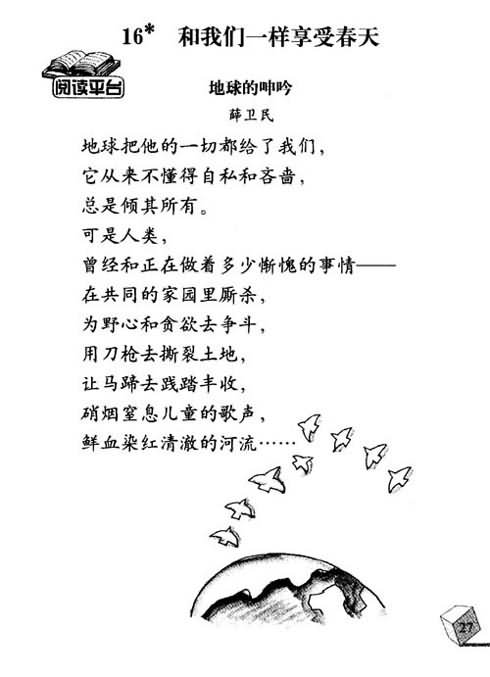 16* 和我们一样享受春天
阅读平台
地球的呻吟
薛卫民
地球把他的一切都给了我们，
它从来不懂得自私和吝啬，
总是倾其所有。
可是人类，
曾经和正在做着多少惭愧的事情——
在共同的家园里厮杀，
为野心和贪欲去争斗，
用刀枪去撕裂土地，
让马蹄去践踏丰收，
硝烟窒息儿童的歌声，
鲜血染红清澈的河流……
27